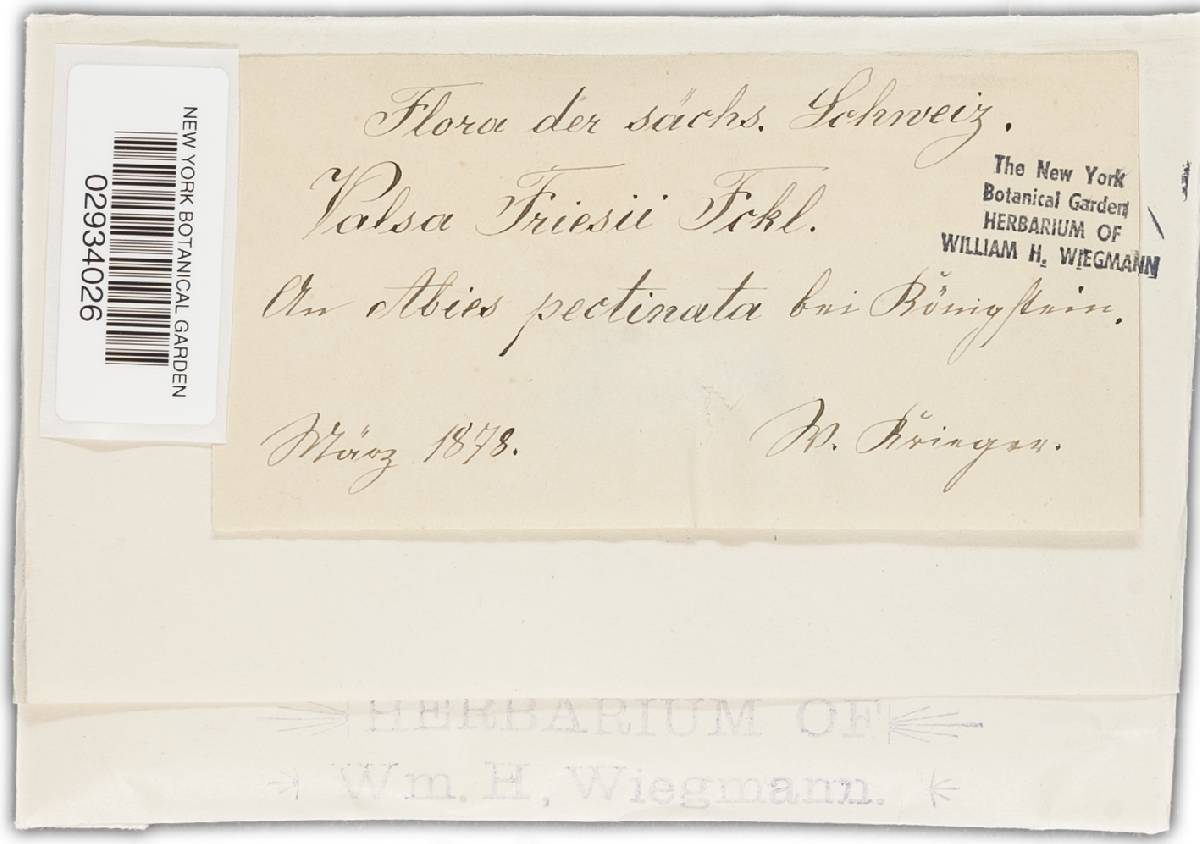 Flora der sächs. Schweiz.
Valsa Friesii Fckl.
An Abies pectinata bei Königstein.
März 1878.
W. Krieger.
The New York
Botanical Garden
HERBARIUM OF
WILLIAM H. WIEGMANN
NEW YORK BOTANICAL GARDEN
02934026
HERBARIUM OF
Wm. H, Wiegmann.